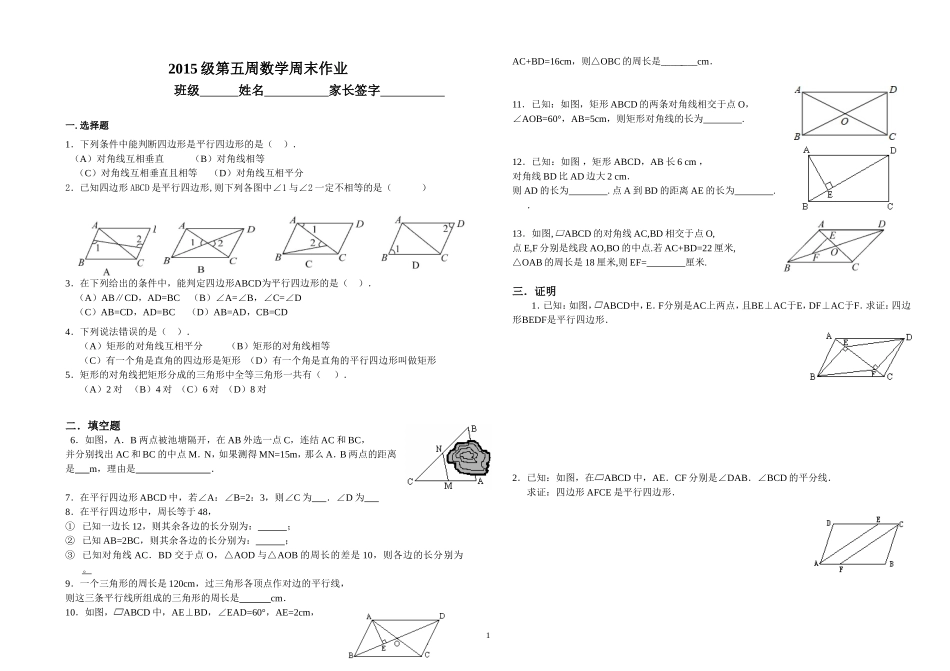 2015 级第五周数学周末作业
班级______姓名__________家长签字__________
一.选择题
1．下列条件中能判断四边形是平行四边形的是（ ）.
（A）对角线互相垂直 （B）对角线相等
（C）对角线互相垂直且相等 （D）对角线互相平分
2．已知四边形 ABCD 是平行四边形,则下列各图中∠1 与∠2 一定不相等的是（ ）
A l 1 2 B C A
A D 1 2 B C B
A D 1 2 B C C
A D 2 1 B C D
3．在下列给出的条件中，能判定四边形ABCD为平行四边形的是（ ）.
（A）AB∥CD，AD=BC （B）∠A=∠B，∠C=∠D
（C）AB=CD，AD=BC （D）AB=AD，CB=CD
4．下列说法错误的是（ ）.
（A）矩形的对角线互相平分 （B）矩形的对角线相等
（C）有一个角是直角的四边形是矩形 （D）有一个角是直角的平行四边形叫做矩形
5．矩形的对角线把矩形分成的三角形中全等三角形一共有（ ）.
（A）2 对 （B）4 对 （C）6 对 （D）8 对
二．填空题
6．如图，A．B 两点被池塘隔开，在 AB 外选一点 C，连结 AC 和 BC，
并分别找出 AC 和 BC 的中点 M．N，如果测得 MN=15m，那么 A．B 两点的距离
是___m，理由是______________.
B N C M A
7．在平行四边形 ABCD 中，若∠A：∠B=2：3，则∠C 为___．∠D 为___
8．在平行四边形中，周长等于 48，
① 已知一边长 12，则其余各边的长分别为：______；
② 已知 AB=2BC，则其余各边的长分别为：______；
③ 已知对角线 AC．BD 交于点 O，△AOD 与△AOB 的周长的差是 10，则各边的长分别为
9．一个三角形的周长是 120cm，过三角形各顶点作对边的平行线，
则这三条平行线所组成的三角形的周长是______cm．
10．如图，▱ABCD 中，AE⊥BD，∠EAD=60°，AE=2cm，
A D E O B C
1
AC+BD=16cm，则△OBC 的周长是_______cm．
11．已知：如图，矩形 ABCD 的两条对角线相交于点 O，
∠AOB=60°，AB=5cm，则矩形对角线的长为________.
A D O B C
12．已知：如图 ，矩形 ABCD，AB 长 6 cm ，
对角线 BD 比 AD 边大 2 cm．
则 AD 的长为________. 点 A 到 BD 的距离 AE 的长为________.
.
A D E B C
13．如图, ▱ABCD 的对角线 AC,BD 相交于点 O,
点 E,F 分别是线段 AO,BO 的中点.若 AC+BD=22 厘米,
△OAB 的周长是 18 厘米,则 EF=________厘米.
A D E F O B C
三．证明
1．已知：如图，▱ABCD中，E．F分别是AC上两点，且BE⊥AC于E，DF⊥AC于F．求证：四边
形BEDF是平行四边形．
A D E F B C
2．已知：如图，在▱ABCD 中，AE．CF 分别是∠DAB．∠BCD 的平分线．
求证：四边形 AFCE 是平行四边形．
D E C A F B